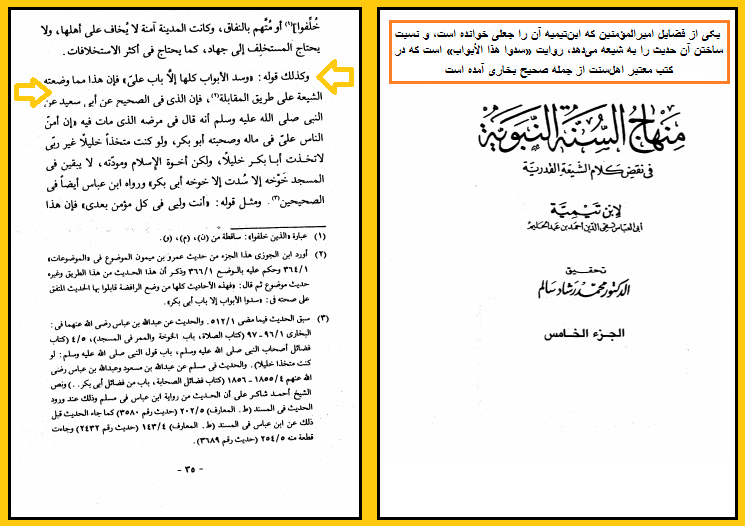 یکی از فضایل امیرالمؤمنین که ابن‌تیمیه آن را جعلی خوانده است، و نسبت
ساختن آن حدیث را به شیعه می‌دهد، روایت «سدوا هذا الأبواب» است که در
کتب معتبر اهل‌سنت از جمله صحیح بخاری آمده است
منهاج السنة النبوية
في نقض كلام الشيعة القدرية
لابن تيمية
أبي العباس تقي الدين أحمد بن عبد الحليم
تحقيق
الدكتور محمد رشاد سالم
الجزء الخامس
خُلِّفوا](١) أو مُتَّهم بالنفاق، وكانت المدينة آمنة لا يُخاف على أهلها، ولا
يحتاج المستخلِف إلى جهاد، كما يحتاج فى أكثر الاستخلافات.
وكذلك قوله: «وسد الأبواب كلها إلَّا باب علىّ» فإن هذا مما وضعته
الشيعة على طريق المقابلة(٢)، فإن الذى فى الصحيح عن أبى سعيد عن
النبى صلى الله عليه وسلم أنه قال فى مرضه الذى مات فيه «إن أمنّ
الناس علىّ فى ماله وصحبته أبو بكر، ولو كنت متخذاً خليلًا غير ربّى
لاتخذت أبا بكر خليلًا، ولكن أخوة الإسلام ومودّته، لا يبقين فى
المسجد خَوْخه إلا سُدت إلا خوخه أبى بكر» ورواه ابن عباس أيضاً فى
الصحيحين(٣). ومثل قوله: «أنت وليى فى كل مؤمن بعدى» فإن هذا
(١) عبارة «الذين خلفوا»: ساقطة من (ن)، (م)، (و).
(٢) أورد ابن الجوزى هذا الجزء من حديث عمرو بن ميمون الموضوع فى «الموضوعات»
٣٦٤/١ وحكم عليه بالوضع ٣٦٦/١ وذكر أن هذا الحديث من هذا الطريق وغيره
حديث موضوع ثم قال: «فهذه الأحاديث كلها من وضع الرافضة قابلوا بها الحديث المتفق
على صحته فى: «سدوا الأبواب إلا باب أبى بكر».
(٣) سبق الحديث فيما مضى ٥١٢/١. والحديث عن عبدالله بن عباس رضى الله عنهما فى:
البخارى ٩٦/١ - ٩٧ (كتاب الصلاة، باب الخوخة والممر فى المسجد)، ٤/٥ (كتاب
فضائل أصحاب النبى صلى الله عليه وسلم، باب قول النبى صلى الله عليه وسلم: لو
كنت متخذا خليلا). والحديث فى مسلم عن عبدالله بن مسعود وعبدالله بن عباس رضى
الله عنهم ١٨٥٥/٤ - ١٨٥٦ (كتاب فضائل الصحابة، باب من فضائل أبى بكر..) ونص
الشيخ أحمد شاكر على أن الحديث من رواية ابن عباس فى مسلم وذلك عند ورود
الحديث فى المسند (ط. المعارف) ٢٠٢/٥ (حديث رقم ٣٥٨٠) كما جاء الحديث قبل
ذلك عن ابن عباس فى المسند (ط. المعارف) ١٤٣/٤ (حديث رقم ٢٤٣٢) وجاءت
قطعة منه ٢٥٤/٥ (حديث رقم ٣٦٨٩).
- ٣٥ -